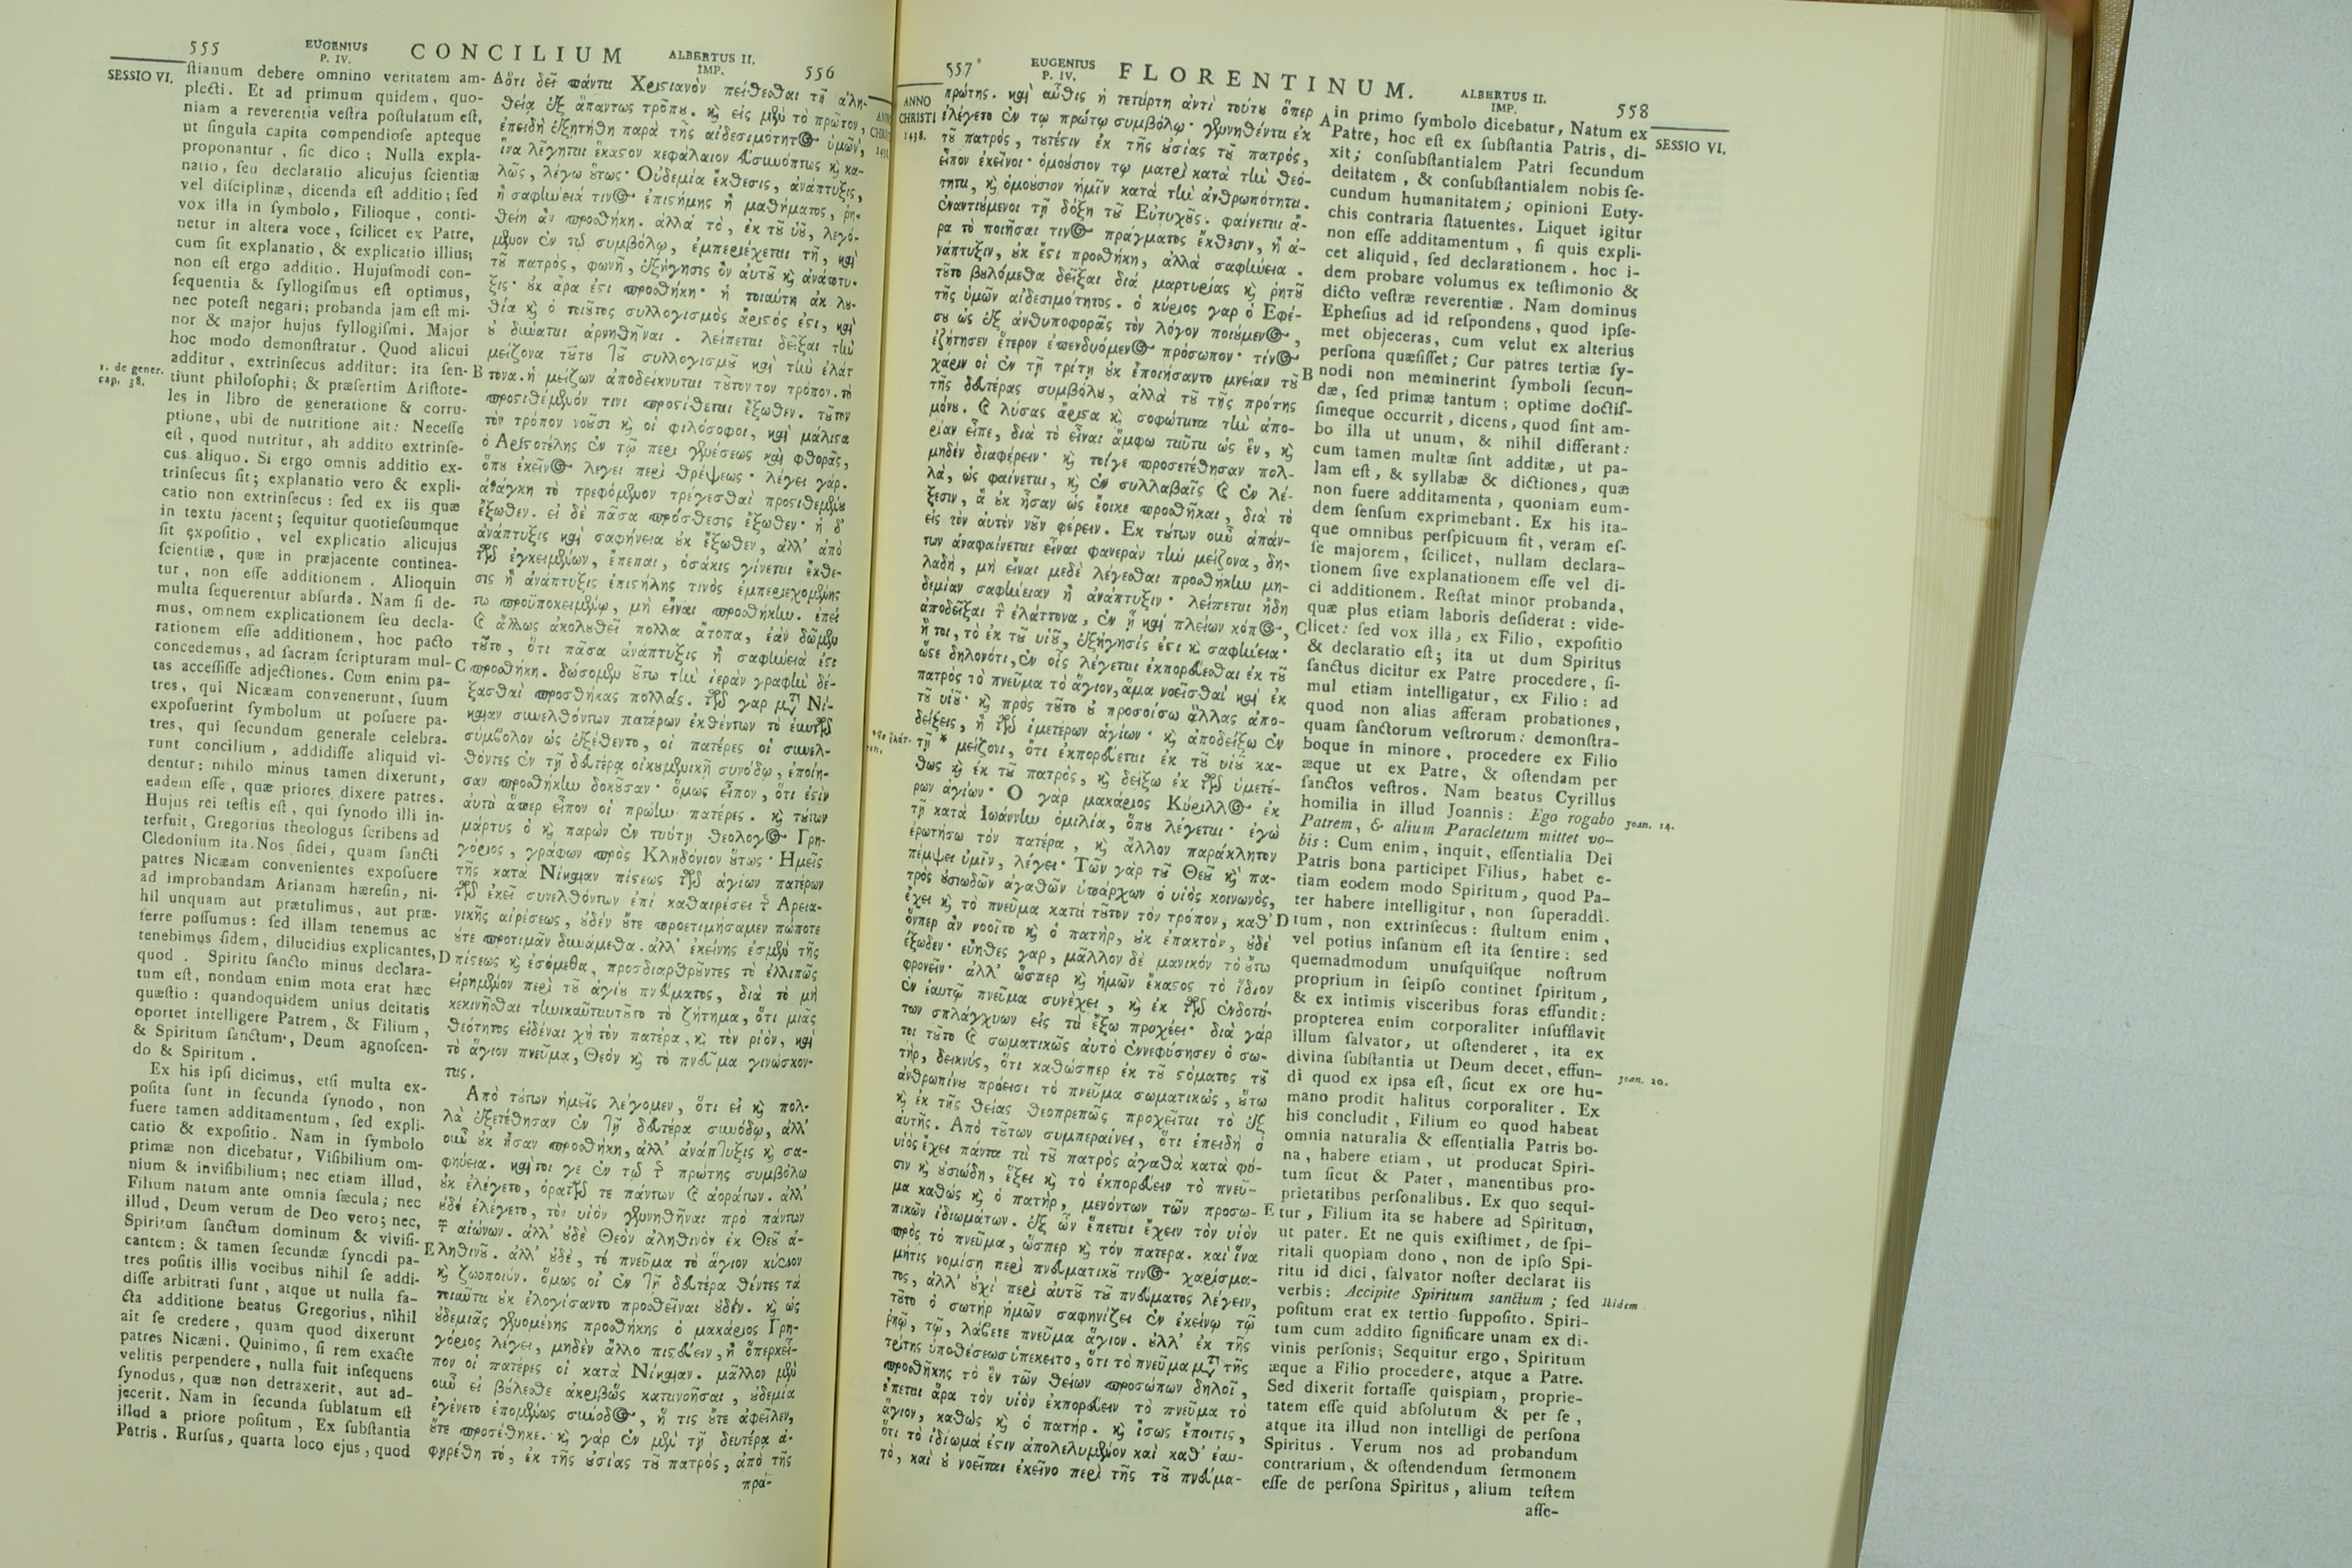 555 EUGENIUS P. IV. CONCILIUM ALBERTUS II. IMP. 556
SESSIO VI.
ſtianum debere omnino veritatem am-
plecti. Et ad primum quidem, quo-
niam a reverentia veſtra poſtulatum eſt,
ut ſingula capita compendioſe apteque
proponantur, ſic dico; Nulla expla-
natio, ſeu declaratio alicujus ſcientiæ
vel diſciplinæ, dicenda eſt additio; ſed
vox illa in ſymbolo, Filioque, conti-
netur in altera voce, ſcilicet ex Patre,
cum ſit explanatio, & explicatio illius;
non eſt ergo additio. Hujuſmodi con-
ſequentia & ſyllogiſmus eſt optimus,
nec poteſt negari; probanda jam eſt mi-
nor & major hujus ſyllogiſmi. Major
hoc modo demonſtratur. Quod alicui
additur, extrinſecus additur: ita ſen-
1. de gener. cap. 38.
tiunt philoſophi; & præſertim Ariſtote-
les in libro de generatione & corru-
ptione, ubi de nutritione ait: Neceſſe
eſt, quod nutritur, ali addito extrinſe-
cus aliquo. Si ergo omnis additio ex-
trinſecus ſit; explanatio vero & expli-
catio non extrinſecus: ſed ex iis quæ
in textu jacent; ſequitur quotieſcumque
ſit expoſitio, vel explicatio alicujus
ſcientiæ, quæ in præjacente continea-
tur, non eſſe additionem. Alioquin
multa ſequerentur abſurda. Nam ſi de-
mus, omnem explicationem ſeu decla-
rationem eſſe additionem, hoc pacto
concedemus, ad ſacram ſcripturam mul-
tas acceſſiſſe adjectiones. Cum enim pa-
tres, qui Nicæam convenerunt, ſuum
expoſuerint ſymbolum ut poſuere pa-
tres, qui ſecundum generale celebra-
runt concilium, addidiſſe aliquid vi-
dentur: nihilo minus tamen dixerunt,
eadem eſſe, quæ priores dixere patres.
Hujus rei teſtis eſt, qui ſynodo illi in-
terfuit, Gregorius theologus ſcribens ad
Cledonium ita. Nos fidei, quam ſancti
patres Nicæam convenientes expoſuere
ad improbandam Arianam hæreſin, ni-
hil unquam aut prætulimus, aut præ-
ferre poſſumus: ſed illam tenemus ac
tenebimus fidem, dilucidius explicantes,
quod. Spiritu ſancto minus declara-
tum eſt, nondum enim mota erat hæc
quæſtio: quandoquidem unius deitatis
oportet intelligere Patrem, & Filium,
& Spiritum ſanctum, Deum agnoſcen-
do & Spiritum.
Ex his ipſi dicimus, etſi multa ex-
poſita ſunt in ſecunda ſynodo, non
fuere tamen additamentum, ſed expli-
catio & expoſitio. Nam in ſymbolo
primæ non dicebatur, Viſibilium om-
nium & inviſibilium; nec etiam illud,
Filium natum ante omnia ſæcula; nec
illud, Deum verum de Deo vero; nec,
Spiritum ſanctum dominum & vivifi-
cantem: & tamen ſecundæ ſynodi pa-
tres poſitis illis vocibus nihil ſe addi-
diſſe arbitrati ſunt, atque ut nulla fa-
cta additione beatus Gregorius, nihil
ait ſe credere, quam quod dixerunt
patres Nicæni. Quinimo, ſi rem exacte
velitis perpendere, nulla fuit inſequens
ſynodus, quæ non detraxerit, aut ad-
jecerit. Nam in ſecunda ſublatum eſt
illud a priore poſitum, Ex ſubſtantia
Patris. Rurſus, quarta loco ejus, quod
A ὅτι δεῖ πάντα Χριστιανὸν πείθεσθαι τῇ ἀλη-
θείᾳ ἐξ ἅπαντος τρόπου. καὶ εἰς μὲν τὸ πρῶτον,
ἐπειδὴ ἐζητήθη παρὰ τῆς αἰδεσιμότητος ὑμῶν,
ἵνα λέγηται ἕκαστον κεφάλαιον εὐσυνόπτως καὶ κα-
λῶς, λέγω οὕτως· Οὐδεμία ἔκθεσις, ἀνάπτυξις,
ἢ σαφήνειά τινος ἐπιστήμης ἢ μαθήματος, ῥη-
θείη ἂν προσθήκη. ἀλλὰ τὸ, ἐκ τοῦ υἱοῦ, λεγό-
μενον ἐν τῷ συμβόλῳ, ἐμπεριέχεται τῇ, καὶ
τοῦ πατρὸς, φωνῇ, ἐξήγησις ὂν αὐτοῦ καὶ ἀνάπτυ-
ξις· οὐκ ἄρα ἐστὶ προσθήκη· ἡ τοιαύτη ἀκολου-
θία καὶ ὁ τοιοῦτος συλλογισμὸς ἄριστός ἐστι, καὶ
οὐ δύναται ἀρνηθῆναι. λείπεται δεῖξαι τὴν
μείζονα τούτου τοῦ συλλογισμοῦ καὶ τὴν ἐλάτ
B τονα. ἡ μείζων ἀποδείκνυται τοῦτον τὸν τρόπον. τὸ
προστιθέμενόν τινι προστίθεται ἔξωθεν. τοῦτον
τὸν τρόπον νοοῦσι καὶ οἱ φιλόσοφοι, καὶ μάλιστα
ὁ Ἀριστοτέλης ἐν τῷ περὶ γενέσεως καὶ φθορᾶς,
ὅπου ἐκεῖνος λέγει περὶ θρέψεως· λέγει γάρ.
ἀνάγκη τὸ τρεφόμενον τρέφεσθαι προστιθεμένου
ἔξωθεν. εἰ δὲ πᾶσα πρόσθεσις ἔξωθεν· ἡ δ'
ἀνάπτυξις καὶ σαφήνεια οὐκ ἔξωθεν, ἀλλ' ἀπὸ
τῶν ἐγκειμένων, ἕπεται, ὁσάκις γίνεται ἔκθε-
σις ἢ ἀνάπτυξις ἐπιστήμης τινὸς ἐμπεριεχομένης
τῳ προϋποκειμένῳ, μὴ εἶναι προσθήκην. ἐπεὶ
καὶ ἄλλως ἀκολουθεῖ πολλὰ ἄτοπα, ἐὰν δῶμεν
τοῦτο, ὅτι πᾶσα ἀνάπτυξις ἢ σαφήνειά ἐστι
C προσθήκη. δώσομεν οὕτω τὴν ἱερὰν γραφὴν δέ-
ξασθαι προσθήκας πολλάς. τῶν γὰρ μετὰ τὴν Νί-
καιαν συνελθόντων πατέρων ἐκθέντων τὸ ἑαυτῶν
σύμβολον ὡς ἐξέθεντο, οἱ πατέρες οἱ συνελ-
θόντες ἐν τῇ δευτέρᾳ οἰκουμενικῇ συνόδῳ, ἐποίη-
σαν προσθήκην δοκοῦσαν· ὅμως εἶπον, ὅτι ἐστὶν
αὐτὰ ἅπερ εἶπον οἱ πρώην πατέρες. καὶ τούτων
μάρτυς ὁ καὶ παρὼν ἐν ταύτῃ θεολόγος Γρη-
γόριος, γράφων πρὸς Κληδόνιον οὕτως· Ἡμεῖς
τῆς κατὰ Νίκαιαν πίστεως τῶν ἁγίων πατέρων
τῶν ἐκεῖ συνελθόντων ἐπὶ καθαιρέσει τῆς Ἀρεια-
νικῆς αἱρέσεως, οὐδὲν οὔτε προετιμήσαμεν πώποτε
οὔτε προτιμᾶν δυνάμεθα. ἀλλ' ἐκείνης ἐσμὲν τῆς
D πίστεως καὶ ἐσόμεθα, προσδιαρθροῦντες τὸ ἐλλιπῶς
εἰρημένον περὶ τοῦ ἁγίου πνεύματος, διὰ τὸ μὴ
κεκινῆσθαι τηνικαῦτα τοῦτο τὸ ζήτημα, ὅτι μιᾶς
θεότητος εἰδέναι χρὴ τὸν πατέρα, καὶ τὸν υἱὸν, καὶ
τὸ ἅγιον πνεῦμα, Θεὸν καὶ τὸ πνεῦμα γινώσκον-
τας.
Ἀπὸ τούτων ἡμεῖς λέγομεν, ὅτι εἰ καὶ πολ-
λὰ ἐξετέθησαν ἐν τῇ δευτέρᾳ συνόδῳ, ἀλλ'
οὖν οὐκ ἦσαν προσθήκη, ἀλλ' ἀνάπτυξις καὶ σα-
φήνεια. καί τοι γε ἐν τῷ τῆς πρώτης συμβόλῳ
οὐκ ἐλέγετο, ὁρατῶν τε πάντων καὶ ἀοράτων. ἀλλ'
οὐδὲ ἐλέγετο, τὸν υἱὸν γεννηθῆναι πρὸ πάντων
τῶν αἰώνων. ἀλλ' οὐδὲ Θεὸν ἀληθινὸν ἐκ Θεοῦ ἀ-
E ληθινοῦ. ἀλλ' οὐδὲ, τὸ πνεῦμα τὸ ἅγιον κύριον
καὶ ζωοποιόν. ὅμως οἱ ἐν τῇ δευτέρᾳ θέντες τὰ
τοιαῦτα οὐκ ἐλογίσαντο προσθεῖναι οὐδέν. καὶ ὡς
οὐδεμιᾶς γενομένης προσθήκης ὁ μακάριος Γρη-
γόριος λέγει, μηδὲν ἄλλο πιστεύειν, ἢ ὅπερ εἶ-
πον οἱ πατέρες οἱ κατὰ Νίκαιαν. μᾶλλον μὲν
οὖν εἰ βούλεσθε ἀκριβῶς κατανοῆσαι, οὐδεμία
ἐγένετο ἑπομένως σύνοδος, ἥ τις οὔτε ἀφεῖλεν,
οὔτε προσέθηκε. καὶ γὰρ ἐν μὲν τῇ δευτέρᾳ ἀ-
φῃρέθη τὸ, ἐκ τῆς οὐσίας τοῦ πατρὸς, ἀπὸ τῆς
πρώ-
557 EUGENIUS P. IV. FLORENTINUM. ALBERTUS II. IMP. 558
ANNO CHRISTI 1438.
πρώτης. καὶ αὖθις ἡ τετάρτη ἀντὶ τούτου ὅπερ
ἐλέγετο ἐν τῳ πρώτῳ συμβόλῳ· γεννηθέντα ἐκ
τοῦ πατρὸς, τουτέστιν ἐκ τῆς οὐσίας τοῦ πατρὸς,
εἶπον ἐκεῖνοι· ὁμοούσιον τῳ πατρὶ κατὰ τὴν θεό-
τητα, καὶ ὁμοούσιον ἡμῖν κατὰ τὴν ἀνθρωπότητα.
ἐναντιούμενοι τῇ δόξῃ τοῦ Εὐτυχοῦς. φαίνεται ἄ-
ρα τὸ ποιῆσαι τινος πράγματος ἔκθεσιν, ἢ ἀ-
νάπτυξιν, οὐκ ἔστι προσθήκη, ἀλλὰ σαφήνεια.
τοῦτο βουλόμεθα δεῖξαι διὰ μαρτυρίας καὶ ῥητοῦ
τῆς ὑμῶν αἰδεσιμότητος. ὁ κύριος γὰρ ὁ Ἐφέ-
σου ὡς ἐξ ἀνθυποφορᾶς τὸν λόγον ποιούμενος,
ἐζήτησεν ἕτερον ἐπενδυόμενος πρόσωπον· τίνος
χάριν οἱ ἐν τῇ τρίτῃ οὐκ ἐποιήσαντο μνείαν τοῦ
τῆς δευτέρας συμβόλου, ἀλλὰ τοῦ τῆς πρώτης
μόνου. καὶ λύσας ἄριστα καὶ σοφώτατα τὴν ἀπο-
ρίαν εἶπε, διὰ τὸ εἶναι ἄμφω ταῦτα ὡς ἓν, καὶ
μηδὲν διαφέρειν· καὶ τοίγε προσετέθησαν πολ-
λὰ, ὡς φαίνεται, καὶ ἐν συλλαβαῖς καὶ ἐν λέ-
ξεσιν, ἃ οὐκ ἦσαν ὡς ἔοικε προσθῆκαι, διὰ τὸ
εἰς τὸν αὐτὸν νοῦν φέρειν. Ἐκ τούτων οὖν ἁπάν-
των ἀναφαίνεται εἶναι φανερὰν τὴν μείζονα, δη-
λαδὴ, μὴ εἶναι μεδὲ λέγεσθαι προσθήκην μη-
δεμίαν σαφήνειαν ἢ ἀνάπτυξιν· λείπεται ἤδη
ἀποδεῖξαι τὴν ἐλάττονα, ἐν ᾗ καὶ πλείων κόπος,
ἤτοι, τὸ ἐκ τοῦ υἱοῦ, ἐξήγησίς ἐστι καὶ σαφήνεια·
ὥστε δηλονότι, ἐν οἷς λέγεται ἐκπορεύεσθαι ἐκ τοῦ
πατρὸς τὸ πνεῦμα τὸ ἅγιον, ἅμα νοεῖσθαι καὶ ἐκ
τοῦ υἱοῦ· καὶ πρὸς τοῦτο οὐ προσοίσω ἄλλας ἀπο-
δείξεις, ἢ τῶν ἡμετέρων ἁγίων· καὶ ἀποδείξω ἐν
τῇ * μείζονι, ὅτι ἐκπορεύεται ἐκ τοῦ υἱοῦ κα-
θὼς καὶ ἐκ τοῦ πατρὸς, καὶ δείξω ἐκ τῶν ὑμετέ-
ρων ἁγίων· Ὁ γὰρ μακάριος Κύριλλος ἐκ
τῇ κατὰ Ἰωάννην ὁμιλίᾳ, ὅπου λέγεται· ἐγὼ
ἐρωτήσω τὸν πατέρα, καὶ ἄλλον παράκλητον
πέμψει ὑμῖν, λέγει· Τῶν γὰρ τοῦ Θεοῦ καὶ πα-
τρὸς οὐσιωδῶν ἀγαθῶν ὑπάρχων ὁ υἱὸς κοινωνὸς,
ἔχει καὶ τὸ πνεῦμα κατὰ τοῦτον τὸν τρόπον, καθ'
ὅνπερ ἂν νοοῖτο καὶ ὁ πατὴρ, οὐκ ἐπακτὸν, οὐδὲ
ἔξωθεν· εὔηθες γὰρ, μᾶλλον δὲ μανικόν τὸ οὕτω
φρονεῖν· ἀλλ' ὥσπερ καὶ ἡμῶν ἕκαστος τὸ ἴδιον
ἐν ἑαυτῷ πνεῦμα συνέχει, καὶ ἐκ τῶν ἐνδοτά-
των σπλάγχνων εἰς τὰ ἔξω προχέει· διὰ γάρ
τοι τοῦτο καὶ σωματικῶς αὐτὸ ἐνεφύσησεν ὁ σω-
τὴρ, δεικνὺς, ὅτι καθώσπερ ἐκ τοῦ στόματος τοῦ
ἀνθρωπίνου πρόεισι τὸ πνεῦμα σωματικῶς, οὕτω
καὶ ἐκ τῆς θείας θεοπρεπῶς προχεῖται τὸ ἐξ
αὐτῆς. Ἀπὸ τούτων συμπεραίνει, ὅτι ἐπειδὴ ὁ
υἱὸς ἔχει πάντα τὰ τοῦ πατρὸς ἀγαθὰ κατὰ φύ-
σιν καὶ οὐσιώδη, ἕξει καὶ τὸ ἐκπορεύειν τὸ πνεῦ-
μα καθὼς καὶ ὁ πατὴρ, μενόντων τῶν προσω-
πικῶν ἰδιωμάτων. ἐξ ὧν ἕπεται ἔχειν τὸν υἱὸν
πρὸς τὸ πνεῦμα, ὥσπερ καὶ τὸν πατέρα. καὶ ἵνα
μήτις νομίσῃ περὶ πνευματικοῦ τινος χαρίσμα-
τος, ἀλλ' οὐχὶ περὶ αὐτοῦ τοῦ πνεύματος λέγειν,
τοῦτο ὁ σωτὴρ ἡμῶν σαφηνίζει ἐν ἐκείνῳ τῷ
ῥητῷ, τῷ, λάβετε πνεῦμα ἅγιον. ἀλλ' ἐκ τῆς
τρίτης ὑποθέσεως ὑπέκειτο, ὅτι τὸ πνεῦμα μετὰ τῆς
προσθήκης τὸ ἓν τῶν θείων προσώπων δηλοῖ,
ἕπεται ἄρα τὸν υἱὸν ἐκπορεύειν τὸ πνεῦμα τὸ
ἅγιον, καθὼς καὶ ὁ πατήρ. καὶ ἴσως εἴποι τις,
ὅτι τὸ ἰδίωμά ἐστιν ἀπολελυμένον καὶ καθ' ἑαυ-
τὸ, καὶ οὐ νοεῖται ἐκεῖνο περὶ τῆς τοῦ πνεύμα-
A in primo ſymbolo dicebatur, Natum ex
SESSIO VI.
Patre, hoc eſt ex ſubſtantia Patris, di-
xit; conſubſtantialem Patri ſecundum
deitatem, & conſubſtantialem nobis ſe-
cundum humanitatem; opinioni Euty-
chis contraria ſtatuentes. Liquet igitur
non eſſe additamentum, ſi quis expli-
cet aliquid, ſed declarationem. hoc i-
dem probare volumus ex teſtimonio &
dicto veſtræ reverentiæ. Nam dominus
Epheſius ad id reſpondens, quod ipſe-
met objeceras, cum velut ex alterius
perſona quæſiſſet; Cur patres tertiæ ſy-
B nodi non meminerint ſymboli ſecun-
dæ, ſed primæ tantum; optime doctiſ-
ſimeque occurrit, dicens, quod ſint am-
bo illa ut unum, & nihil differant:
cum tamen multæ ſint additæ, ut pa-
lam eſt, & ſyllabæ & dictiones, quæ
non fuere additamenta, quoniam eum-
dem ſenſum exprimebant. Ex his ita-
que omnibus perſpicuum ſit, veram eſ-
ſe majorem, ſcilicet, nullam declara-
tionem ſive explanationem eſſe vel di-
ci additionem. Reſtat minor probanda,
quæ plus etiam laboris deſiderat: vide-
C licet: ſed vox illa, ex Filio, expoſitio
& declaratio eſt; ita ut dum Spiritus
ſanctus dicitur ex Patre procedere, ſi-
mul etiam intelligatur, ex Filio: ad
quod non alias afferam probationes,
quam ſanctorum veſtrorum: demonſtra-
boque in minore, procedere ex Filio
æque ut ex Patre, & oſtendam per
ſanctos veſtros. Nam beatus Cyrillus
homilia in illud Joannis: Ego rogabo
Joan. 14.
Patrem, & alium Paracletum mittet vo-
bis: Cum enim, inquit, eſſentialia Dei
Patris bona participet Filius, habet e-
tiam eodem modo Spiritum, quod Pa-
ter habere intelligitur, non ſuperaddi-
D tum, non extrinſecus: ſtultum enim,
vel potius inſanum eſt ita ſentire: ſed
quemadmodum unuſquiſque noſtrum
proprium in ſeipſo continet ſpiritum,
& ex intimis viſceribus foras effundit:
propterea enim corporaliter inſufflavit
illum ſalvator, ut oſtenderet, ita ex
divina ſubſtantia ut Deum decet, effun-
Joan. 20.
di quod ex ipſa eſt, ſicut ex ore hu-
mano prodit halitus corporaliter. Ex
his concludit, Filium eo quod habeat
omnia naturalia & eſſentialia Patris bo-
na, habere etiam, ut producat Spiri-
tum ſicut & Pater, manentibus pro-
prietatibus perſonalibus. Ex quo ſequi-
E tur, Filium ita ſe habere ad Spiritum,
ut pater. Et ne quis exiſtimet, de ſpi-
ritali quopiam dono, non de ipſo Spi-
ritu id dici, ſalvator noſter declarat iis
verbis: Accipite Spiritum sanctum; ſed
Ibidem
poſitum erat ex tertio ſuppoſito. Spiri-
tum cum addito ſignificare unam ex di-
vinis perſonis; Sequitur ergo, Spiritum
æque a Filio procedere, atque a Patre.
Sed dixerit fortaſſe quispiam, proprie-
tatem eſſe quid abſolutum & per ſe,
atque ita illud non intelligi de perſona
Spiritus. Verum nos ad probandum
contrarium, & oſtendendum ſermonem
eſſe de perſona Spiritus, alium teſtem
aſſe-